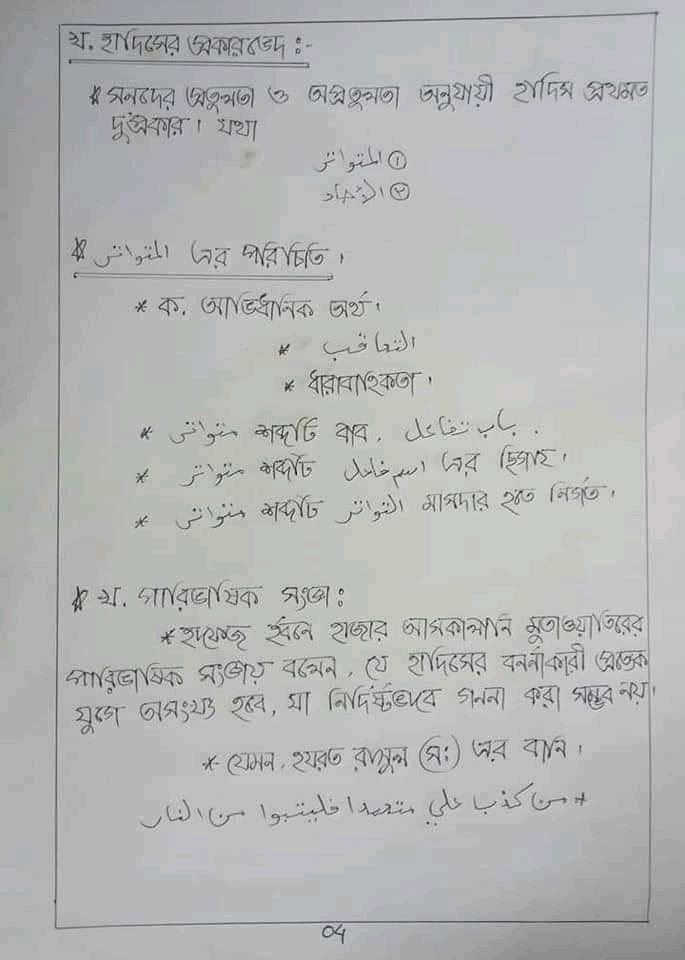 খ. হাদিসের প্রকারভেদ :-
* সনদের প্রতুলতা ও অপ্রতুলতা অনুযায়ী হাদিস প্রথমত
দু'প্রকার। যথা
① المتواتر
②
* المتواتر এর পরিচিতি।
* ক. আভিধানিক অর্থ।
* التعاقب
* ধারাবাহিকতা।
* متواتر শব্দটি বাব. باب تفاعل .
* متواتر শব্দটি اسم فاعل এর ছিগাহ।
* متواتر শব্দটি التواتر মাসদার হতে নির্গত।
* খ. পারিভাষিক সংজ্ঞা :
* হাফেজ ইবনে হাজার আসকালানি মুতাওয়াতিরের
পারিভাষিক সংজ্ঞায় বলেন, যে হাদিসের বর্ননাকারী প্রত্যেক
যুগে অসংখ্য হবে, যা নির্দিষ্টভাবে গননা করা সম্ভব নয়।
* যেমন. হযরত রাসুল (স:) এর বানি।
* من كذب علي متعمدا فليتبوا من النار
04